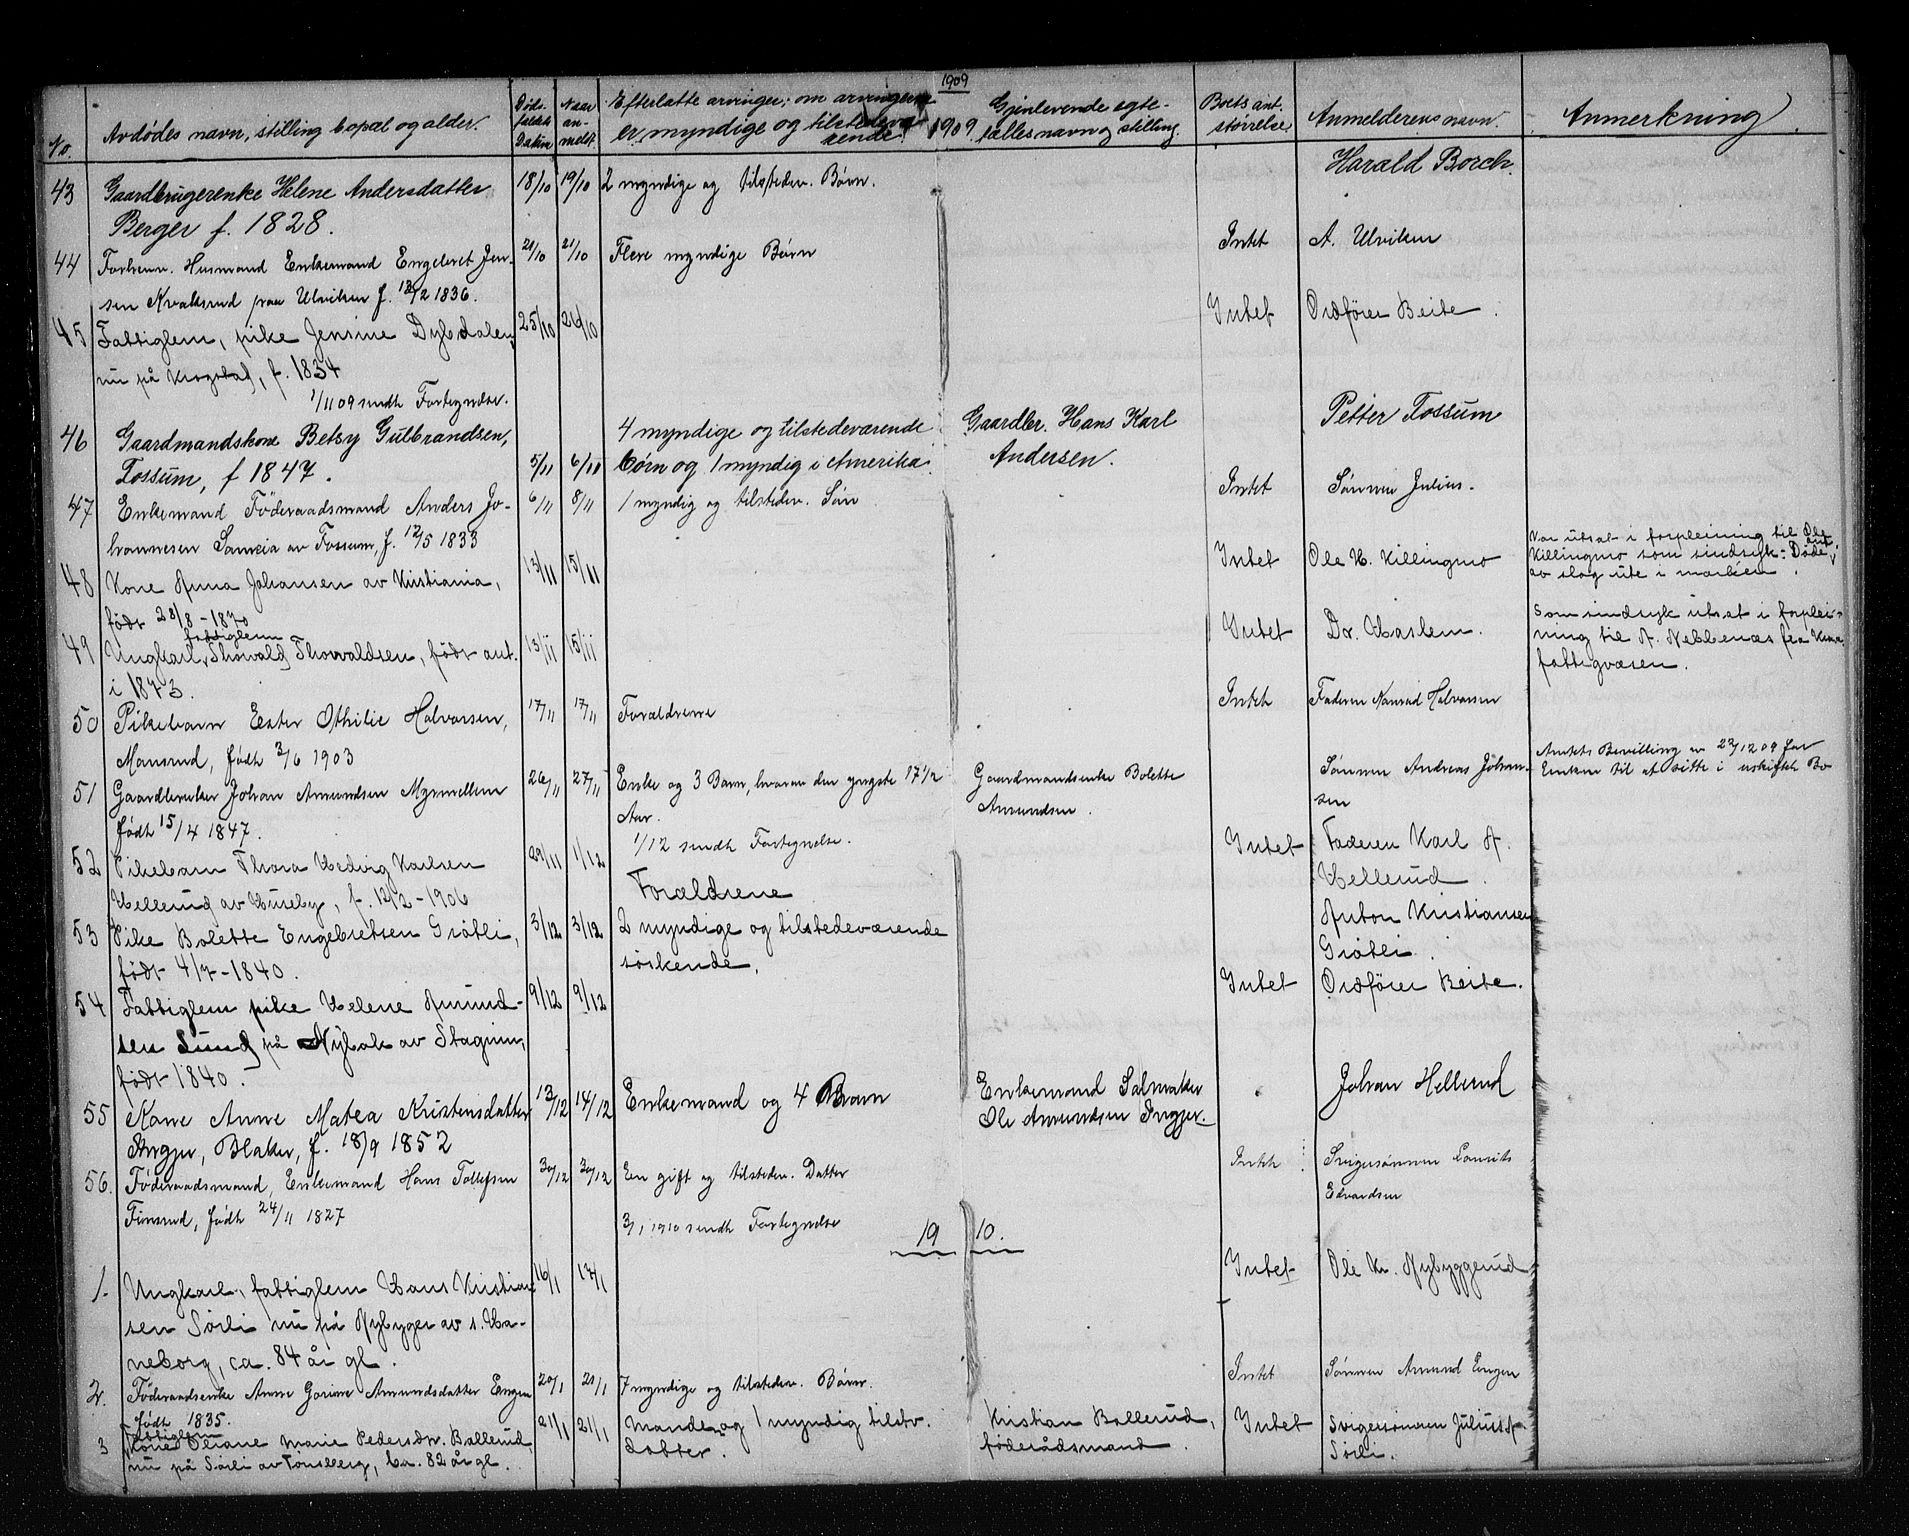 1909
No. Avdødes navn, stilling bopæl og alder. Døds-faldets Datum Naar an-meldt Efterlatte arvinger; om arvingerne er myndige og tilstedevæ-rende. 1909. Gjenlevende egte-fælles navn og stilling. Boets ant. størrelse Anmelderens navn. Anmerkning.
43 Gaardbrugerenke Helene Andersdatter 18/10 19/10 2 myndige og tilsteder. Børn. Harald Borch.
Berger f. 1828.
44 Forhenv. Husmand Enkemand Engebret Jen- 21/10 21/10 Flere myndige Børn Intet A. Ulviken
sen Kvaksrud paa Ulviken f. 12/2 1836.
45 Fattiglem, pike Jensine Dybdalen, 25/10 26/10 Intet Ordfører Beite.
nu på Krogstad, f. 1834
1/11 09 sendt Fortegnelse.
46 Gaardmandskone Betsy Gulbrandsen, 4 myndige og tilstedeværende Gaardbr. Hans Karl Petter Fossum
Fossum, f 1847. 5/11 6/11 børn og 1 myndig i Amerika. Andersen.
47 Enkemand Føderaadsmand Anders Jo- 6/11 8/11 1 myndig og tilsteder. Søn Intet Sønnen Julius.
hannesen av Fossum, f. 12/5 1833
48 Kone Anna Johansen av Kristiania, 13/11 15/11 Intet Ole H. Killingmo Var utsat i forpleining til Ole
Killingmo som sindsyk. Døde ant.
av slag ute i marken.
født 28/8-1870
49 Ungkarl, fattiglem Thorvald Thorvaldsen, født ant. 13/11 15/11 Intet Dr. Haslem. Som sindsyk utsat i forplei-
ning til A. Nebbenæs fra
fattigvæsen.
i 1873.
50 Pikebarn Ester Othilie Halvorsen, 17/11 17/11 Forældrene Intet Faderen Konrad Halvorsen
Monsrud, født 3/6 1903
51 Gaardbruker Johan Amundsen Myrmellem 26/11 27/11 Enke og 3 Barn, hvorav den yngste 17 1/2 Gaardmandsenke Bolette Sønnen Andreas Johan- Amtets Bevilling av 22/12 09 for
Enken til at sitte i uskiftet Bo
født 15/4 1847. Aar. Amundsen. sen
1/12 sendt Fortegnelse.
52 Pikebarn Thora Hedvig Karlsen 29/11 1/12 Intet Faderen Karl A.
Hellerud av Huseby, f. 12/2-1906 Forældrene Hellerud.
53 Pike Bolette Engebretsen Grøtli, 3/12 3/12 2 myndige og tilstedeværende Anton Kristiansen
født 4/7-1840. søskende. Grøtli.
54 Fattiglem pike Helene Amund- 9/12 9/12 Intet Ordfører Beite.
sen Lund på Nybak av Stagrim,
født 1840.
55 Kone Anne Matea Kristensdatter 13/12 14/12 Enkemand og 4 Barn Enkemand Salmaker Johan Hellerud
Ingjer, Blaker, f. 18/9 1852 Ole Amundsen Ingjer.
56. Føderaadsmand, Enkemand Hans Tollefsen 30/12 30/12 Een gift og tilsteder. Datter Intet Svigersønnen Laurits
Edvardsen
Finsrud, født 24/11 1827
3/1 1910 sendt Fortegnelse
19 10.
1. Ungkarl, fattiglem Hans Kristian- 16/1 17/1 Intet Ole Kr. Nybyggerud
sen Sørli nu på Nybyget av s. Ha-
neborg, ca. 84 år gl.
2. Føderaadsenke Anne Gorine Amundsdatter Engen 20/1 21/1 7 myndige og tilsteder. Børn. Intet Sønnen Amund Engen
født 1835.
3 Fattiglem Kone Oliane Marie Pedersdtr. Ballerud, 21/1 21/1 Mand og 1 myndig tilstv. Kristian Ballerud, Intet Svigersønnen Julius A.
nu på Sørli av Tonsberg, ca. 82 år gl. Datter. føderådsmand. Sørli.